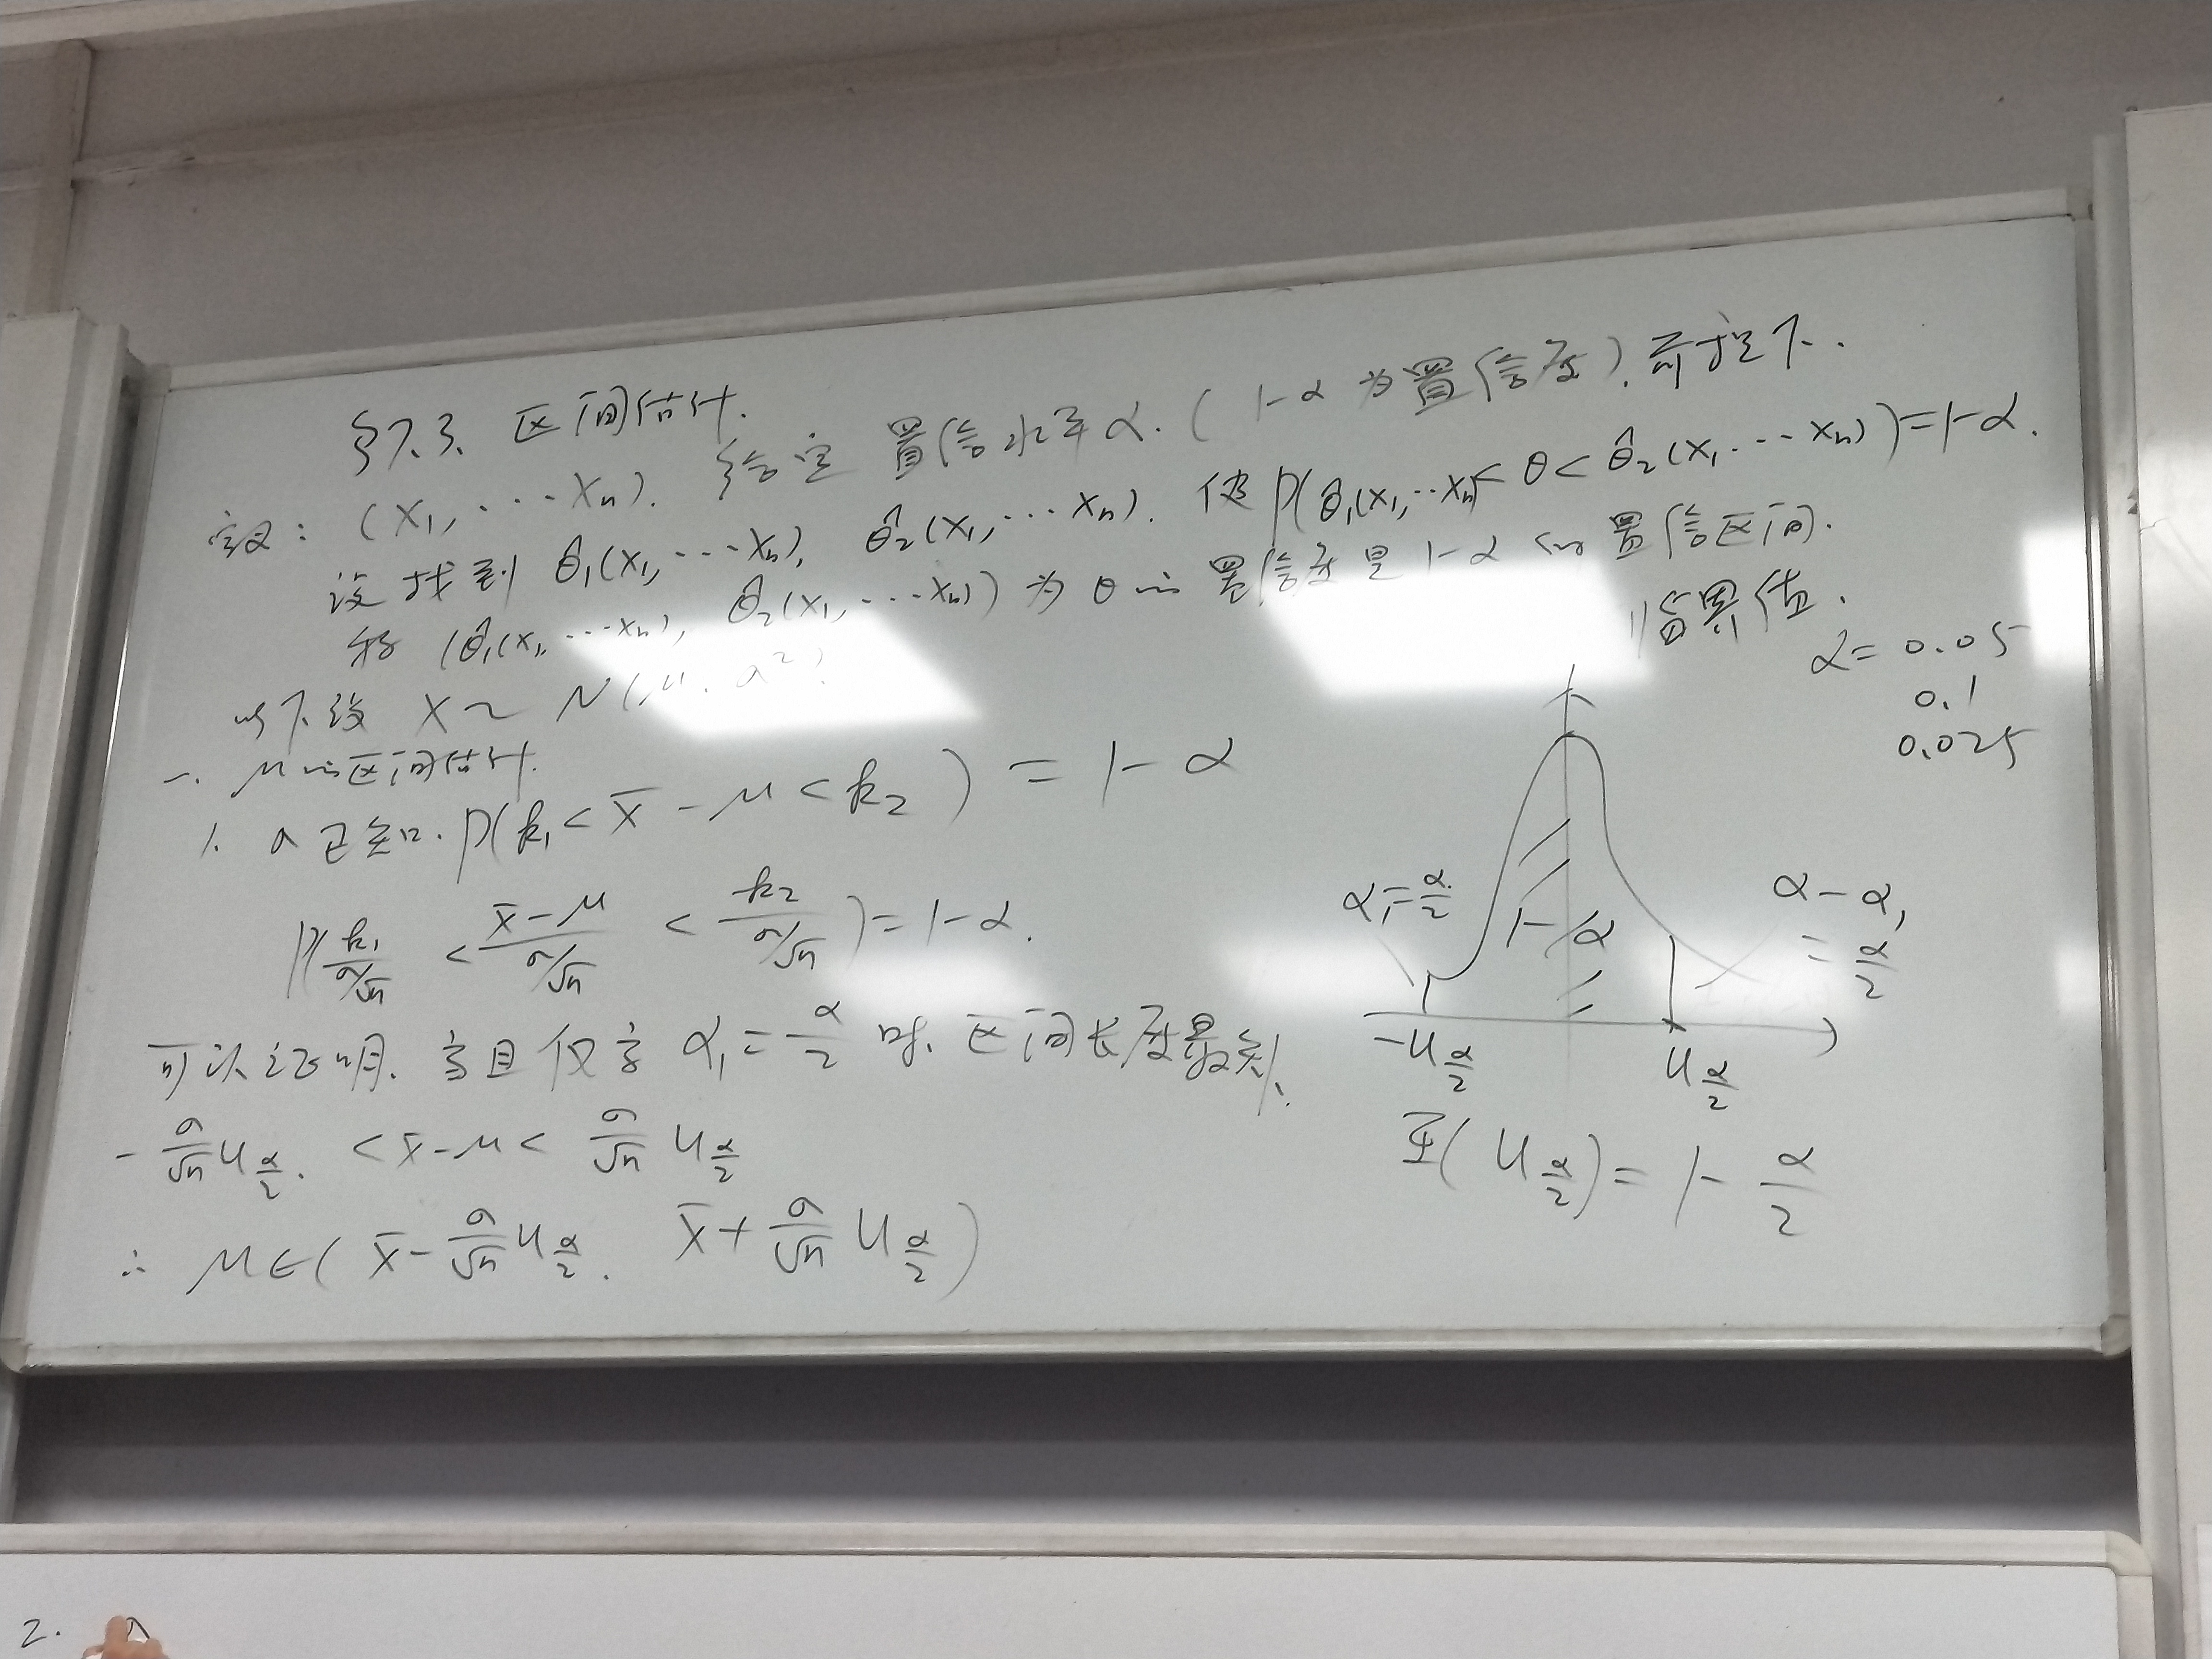 §7.3. 区间估计.
定义: (X₁, ⋯ Xₙ). 给定 置信水平 α. (1-α 为置信度).
设找到 θ̂₁(X₁, ⋯ Xₙ), θ̂₂(X₁, ⋯ Xₙ). 使 P(θ̂₁(X₁, ⋯ Xₙ) < θ < θ̂₂(X₁ ⋯ Xₙ)) = 1-α.
称 (θ̂₁(X₁, ⋯ Xₙ), θ̂₂(X₁, ⋯ Xₙ)) 为 θ 的 置信度是 1-α 的 置信区间.
临界值.
以下设 X ~ N(μ, σ²)
一. μ的区间估计.
1. σ已知. P(k₁ < X̄ - μ < k₂) = 1-α
P(k₁/(σ/√n) < (X̄-μ)/(σ/√n) < k₂/(σ/√n)) = 1-α.
可以证明. 当且仅当 α₁ = α/2 时. 区间长度最短.
-σ/√n u_{α/2} < X̄-μ < σ/√n u_{α/2}
∴ μ∈( X̄-σ/√n u_{α/2}. X̄+σ/√n u_{α/2} )
α = 0.05
0.1
0.025
α₁ = α/2
1-α
α-α₁
= α/2
-u_{α/2}
u_{α/2}
Φ(u_{α/2}) = 1-α/2
2. σ